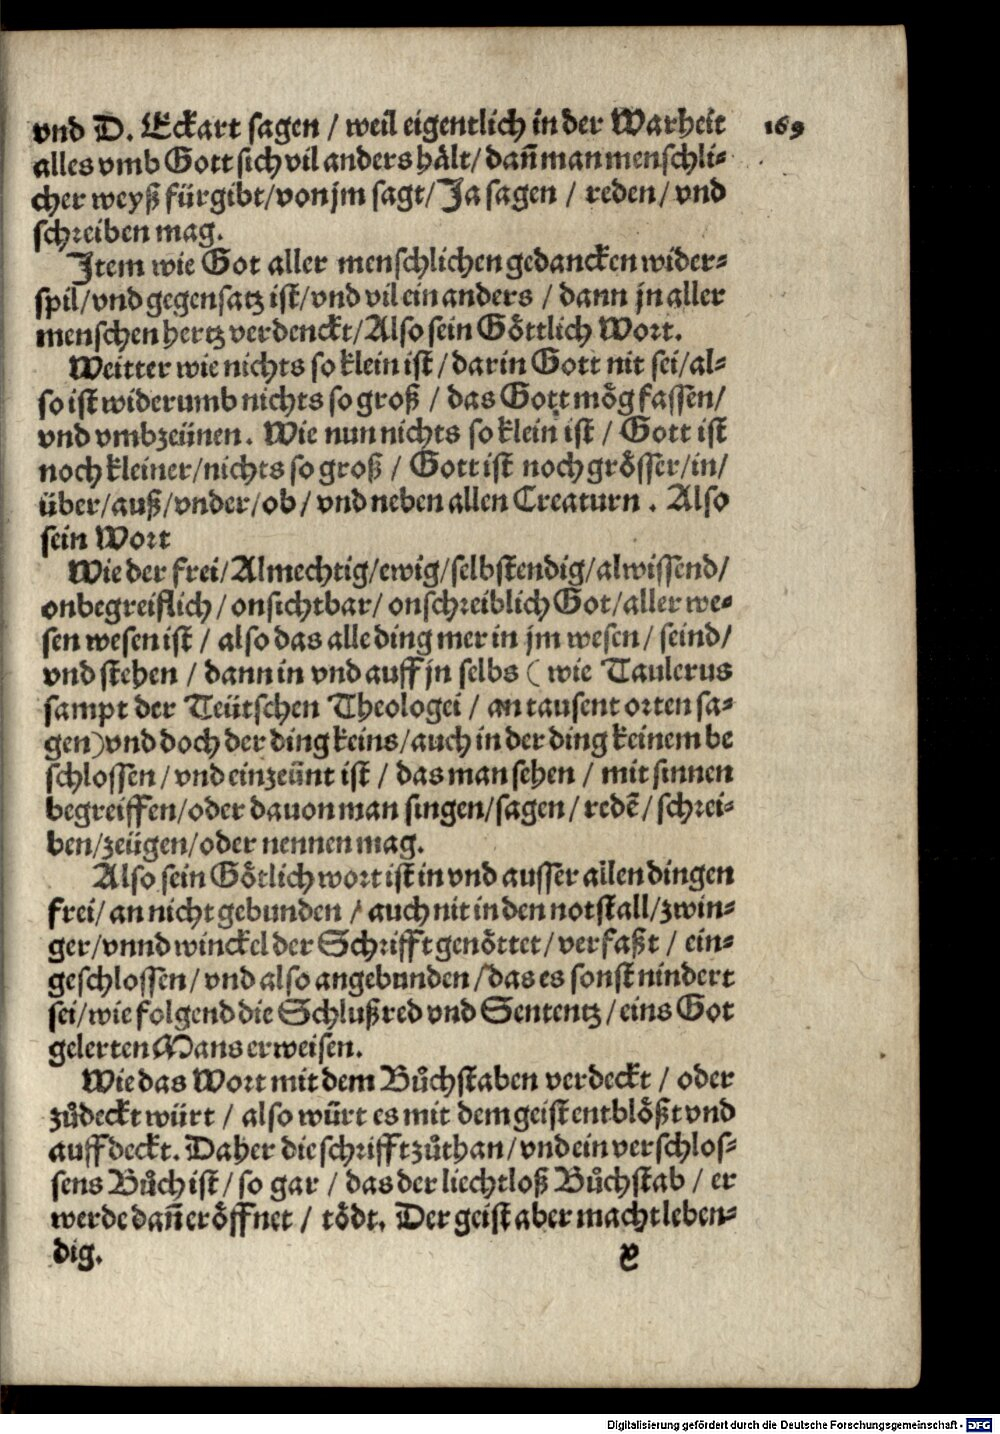 vnd D. Eckart sagen / weil eigentlich in der Warheit 169
alles vmb Gott sich vil anders hålt/ dañ man menschli⸗
cher weyß fürgibt/von jm sagt/ Ja sagen / reden/ vnd
schreiben mag.
Item wie Got aller menschlichen gedancken wider⸗
spil/vnd gegensatz ist/vnd vil ein anders / dann jn aller
menschen hertz verdenckt/Also sein Göttlich Wort.
Weitter wie nichts so klein ist / darin Gott nit sei/al⸗
so ist widerumb nichts so groß / das Gott mög fassen/
vnd vmbzeünen. Wie nun nichts so klein ist / Gott ist
noch kleiner/nichts so groß / Gott ist noch grösser/in/
über/auß/vnder/ob/ vnd neben allen Creaturn . Also
sein Wort
Wie der frei/Almechtig/ewig/selbstendig/alwissend/
onbegreiflich/onsichtbar/ onschreiblich Got/aller we⸗
sen wesen ist / also das alle ding mer in jm wesen/ seind/
vnd stehen / dann in vnd auff jn selbs ( wie Taulerus
sampt der Teütschen Theologei / an tausent orten sa⸗
gen)vnd doch der ding keins/auch in der ding keinem be
schlossen/vnd einzeünt ist / das man sehen / mit sinnen
begreiffen/oder dauon man singen/sagen / redẽ/ schrei⸗
ben/zeügen/oder nennen mag.
Also sein Götlich wort ist in vnd ausser allen dingen
frei/ an nicht gebunden / auch nit in den notstall/zwin⸗
ger/vnnd winckel der Schrifft genöttet/verfaßt / ein⸗
geschlossen/ vnd also angebunden/das es sonst nindert
sei/wie folgend die Schlußred vnd Sententz/eins Got
gelerten Mans erweisen.
Wie das Wort mit dem Bůchstaben verdeckt / oder
zůdeckt würt / also würt es mit dem geist entblößt vnd
auffdeckt. Daher die schrifft zůthan/vnd ein verschlos⸗
sens Bůch ist/so gar / das der liechtloß Bůchstab / er
werde dañ eröffnet / tödt. Der geist aber macht leben⸗
dig. y
Digitalisierung gefördert durch die Deutsche Forschungsgemeinschaft - DFG